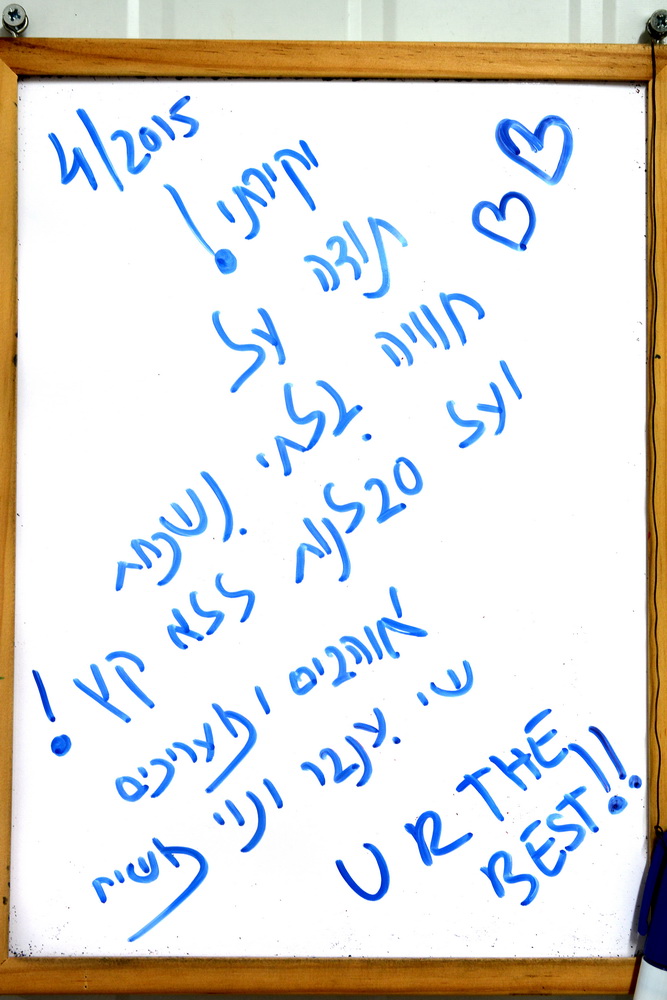 4/2015
יקירתי!
תודה על
חוויה בלתי נשכחת
ועל סבלנות ללא קץ!
אוהבים ומעריכים
שי ענבר ונוי משיח
U R THE
BEST!!